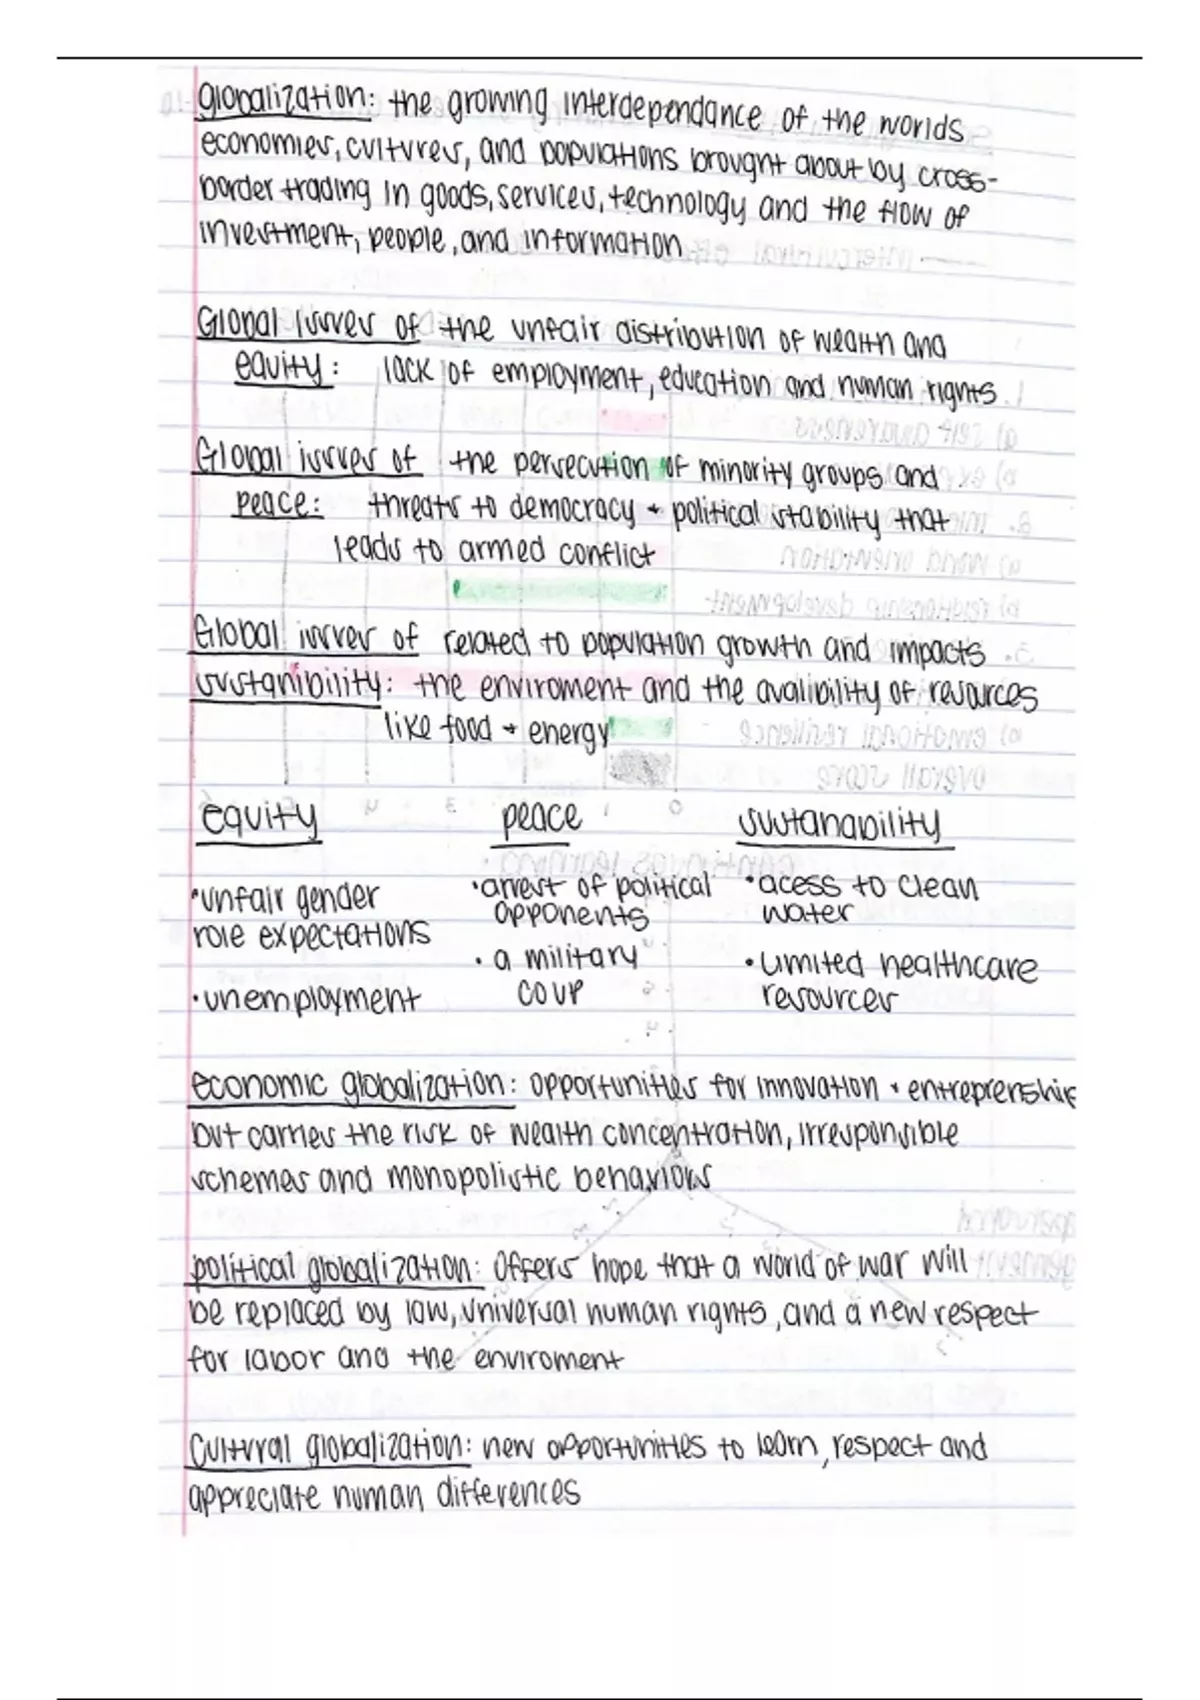 globalization: the growing interdependance of the worlds
economies, cultures, and populations brought about by cross-
border trading in goods, services, technology and the flow of
investment, people, and information
Global issues of the unfair distribution of wealth and
equity: lack of employment, education and human rights
Global issues of the persecution of minority groups and
peace: threats to democracy + political stability that
leads to armed conflict
Global issues of related to population growth and impacts
sustanibility: the enviroment and the avalibility of resources
like food + energy
equity peace sustanability
•unfair gender
role expectations
•unemployment
•arrest of political
opponents
•a military
coup
•acess to clean
water
•limited healthcare
resources
economic globalization: opportunities for innovation + entreprenship
but carries the risk of wealth concentration, irresponsible
schemes and monopolistic behaviors
political globalization: offers hope that a world of war will
be replaced by law, universal human rights, and a new respect
for labor and the enviroment
Cultural globalization: new opportunities to learn, respect and
appreciate human differences